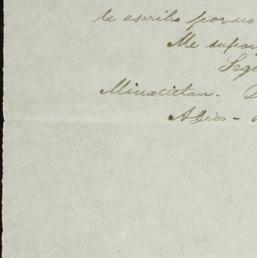 le escribo por no
Me supon
Segu
Minatitlan.
Adios -